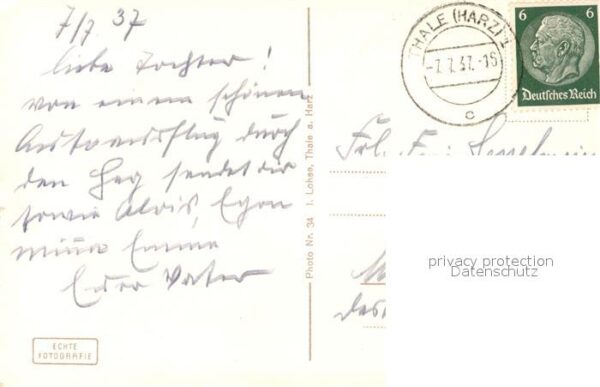 7/7. 37
Liebe Tochter!
von einem schönen
Ausflug durch
den Harz sendet dir
sowie Alois, Egon
Emma
Euer Vater
ECHTE
FOTOGRAFIE
Photo Nr. 34 I. Lohse, Thale a. Harz
THALE (HARZ) 1
-7.7.37.-15
c
6 6
Deutsches Reich
Frl.
privacy protection
Datenschutz